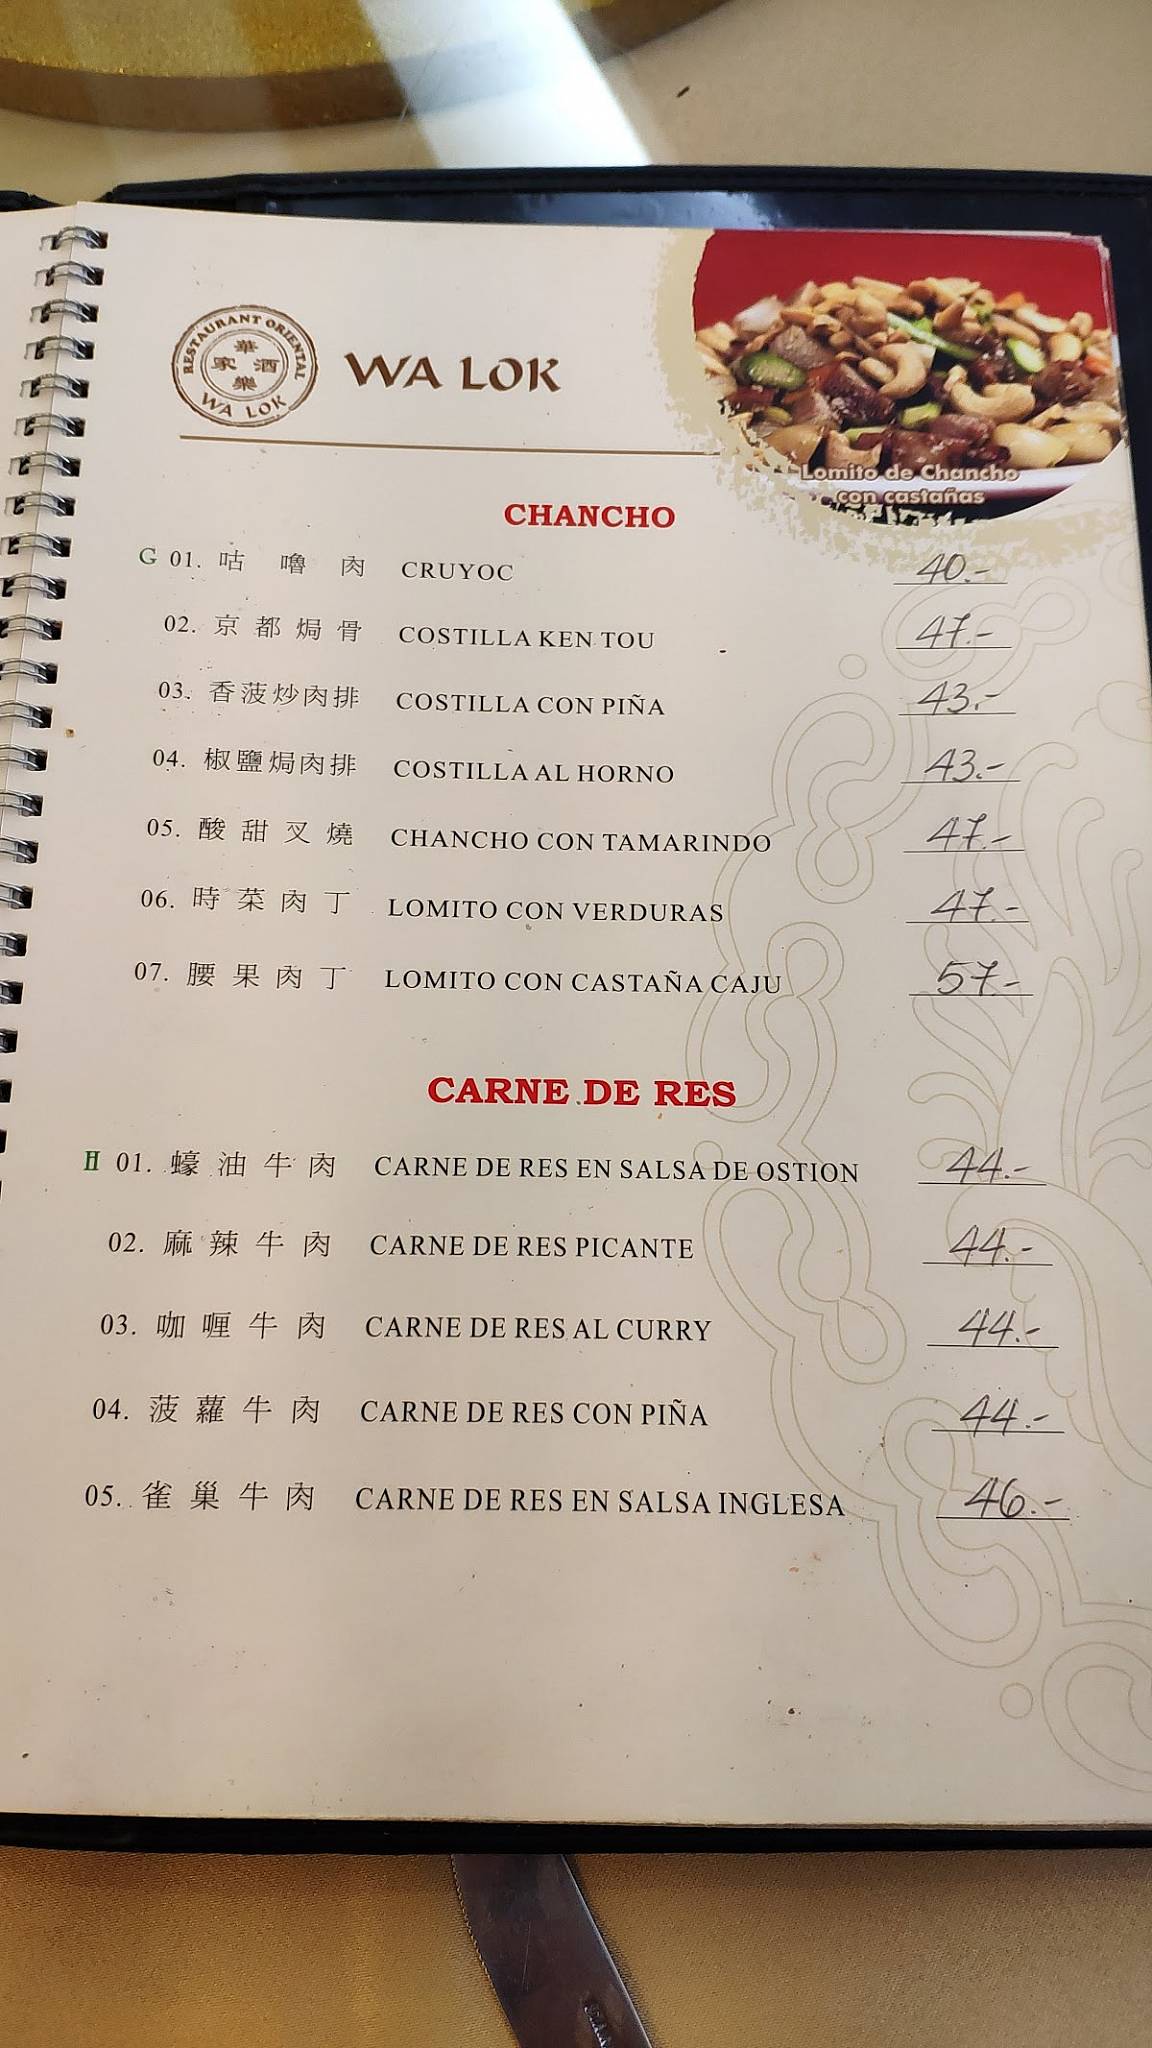 RESTAURANT ORIENTAL
華
家 酒
樂
WA LOK
WA LOK
Lomito de Chancho
con castañas
CHANCHO
G 01. 咕 嚕 肉 CRUYOC 40.-
02. 京 都 焗 骨 COSTILLA KEN TOU 47.-
03. 香菠炒肉排 COSTILLA CON PIÑA 43.-
04. 椒鹽焗肉排 COSTILLA AL HORNO 43.-
05. 酸 甜 叉 燒 CHANCHO CON TAMARINDO 47.-
06. 時 菜 肉 丁 LOMITO CON VERDURAS 47.-
07. 腰 果 肉 丁 LOMITO CON CASTAÑA CAJU 57.-
CARNE DE RES
H 01. 蠔 油 牛 肉 CARNE DE RES EN SALSA DE OSTION 44.-
02. 麻 辣 牛 肉 CARNE DE RES PICANTE 44.-
03. 咖 喱 牛 肉 CARNE DE RES AL CURRY 44.-
04. 菠 蘿 牛 肉 CARNE DE RES CON PIÑA 44.-
05. 雀 巢 牛 肉 CARNE DE RES EN SALSA INGLESA 46.-